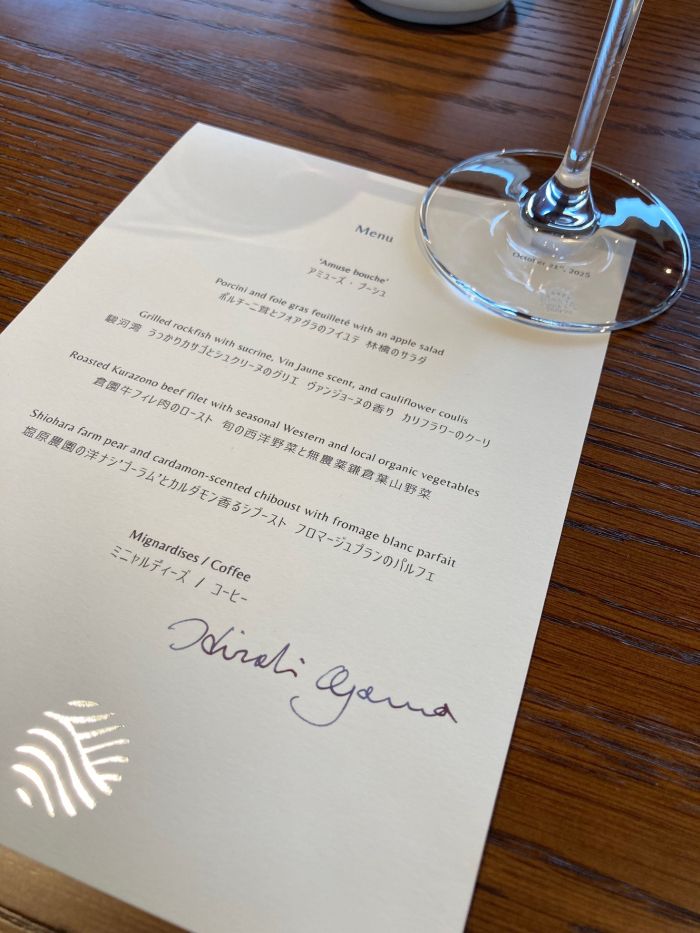 Menu
October 21st, 2025
'Amuse bouche'
アミューズ・ブーシュ
Porcini and foie gras feuilleté with an apple salad
ポルチーニ茸とフォアグラのフイユテ 林檎のサラダ
Grilled rockfish with sucrine, Vin Jaune scent, and cauliflower coulis
駿河湾 うっかりカサゴとシュクリーヌのグリエ ヴァンジョーヌの香り カリフラワーのクーリ
Roasted Kurazono beef filet with seasonal Western and local organic vegetables
倉園牛フィレ肉のロースト 旬の西洋野菜と無農薬鎌倉葉山野菜
Shiohara farm pear and cardamon-scented chiboust with fromage blanc parfait
塩原農園の洋ナシ'ゴーラム'とカルダモン香るシブースト フロマージュブランのパルフェ
Mignardises / Coffee
ミニャルディーズ / コーヒー
Hiroki Oyama